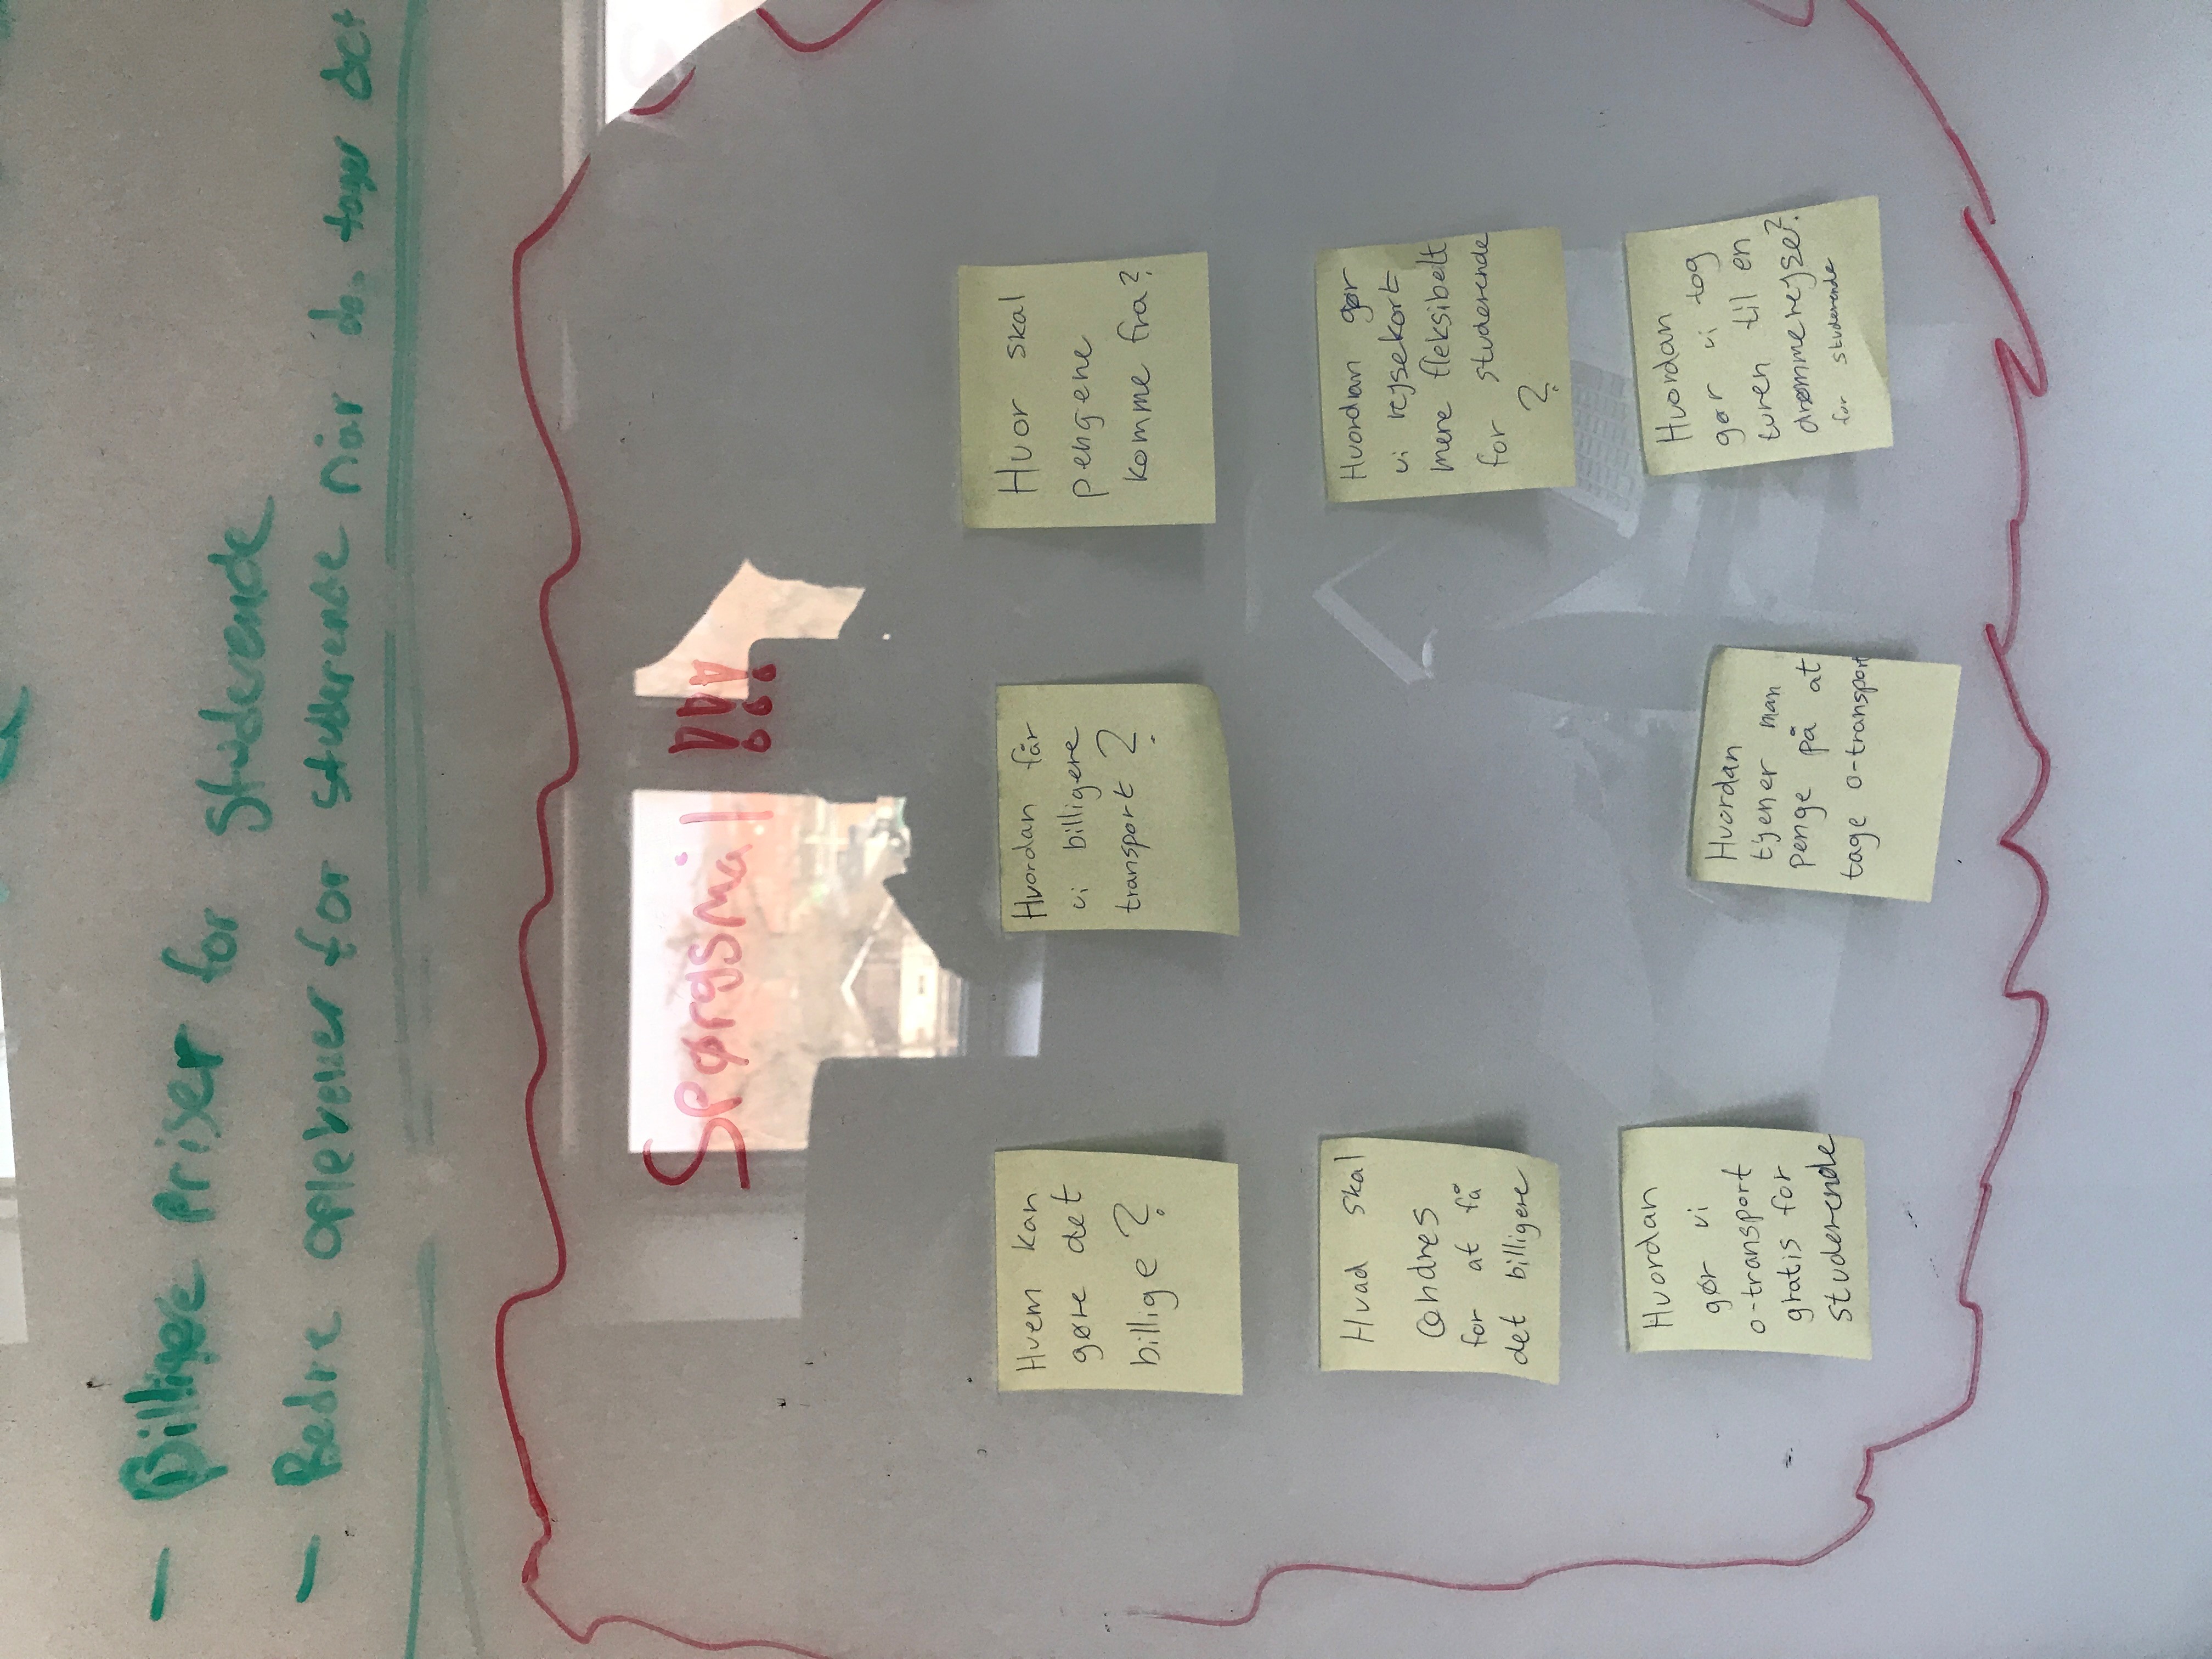 - Billigere priser for studerende
- Bedre oplevelser for studerende når de tager det
Spørgsmål !!!
Hvem kan
gøre det
billige?
Hvordan får
vi billigere
transport?
Hvor skal
pengene
komme fra?
Hvad skal
ændres
for at få
det billigere
Hvordan gør
vi rejsekort
mere fleksibelt
for studerende
?
Hvordan
gør vi
o-transport
gratis for
studerende
Hvordan
tjener man
penge på at
tage o-transport
Hvordan
gør vi tog
turen til en
drømmerejse?
for studerende